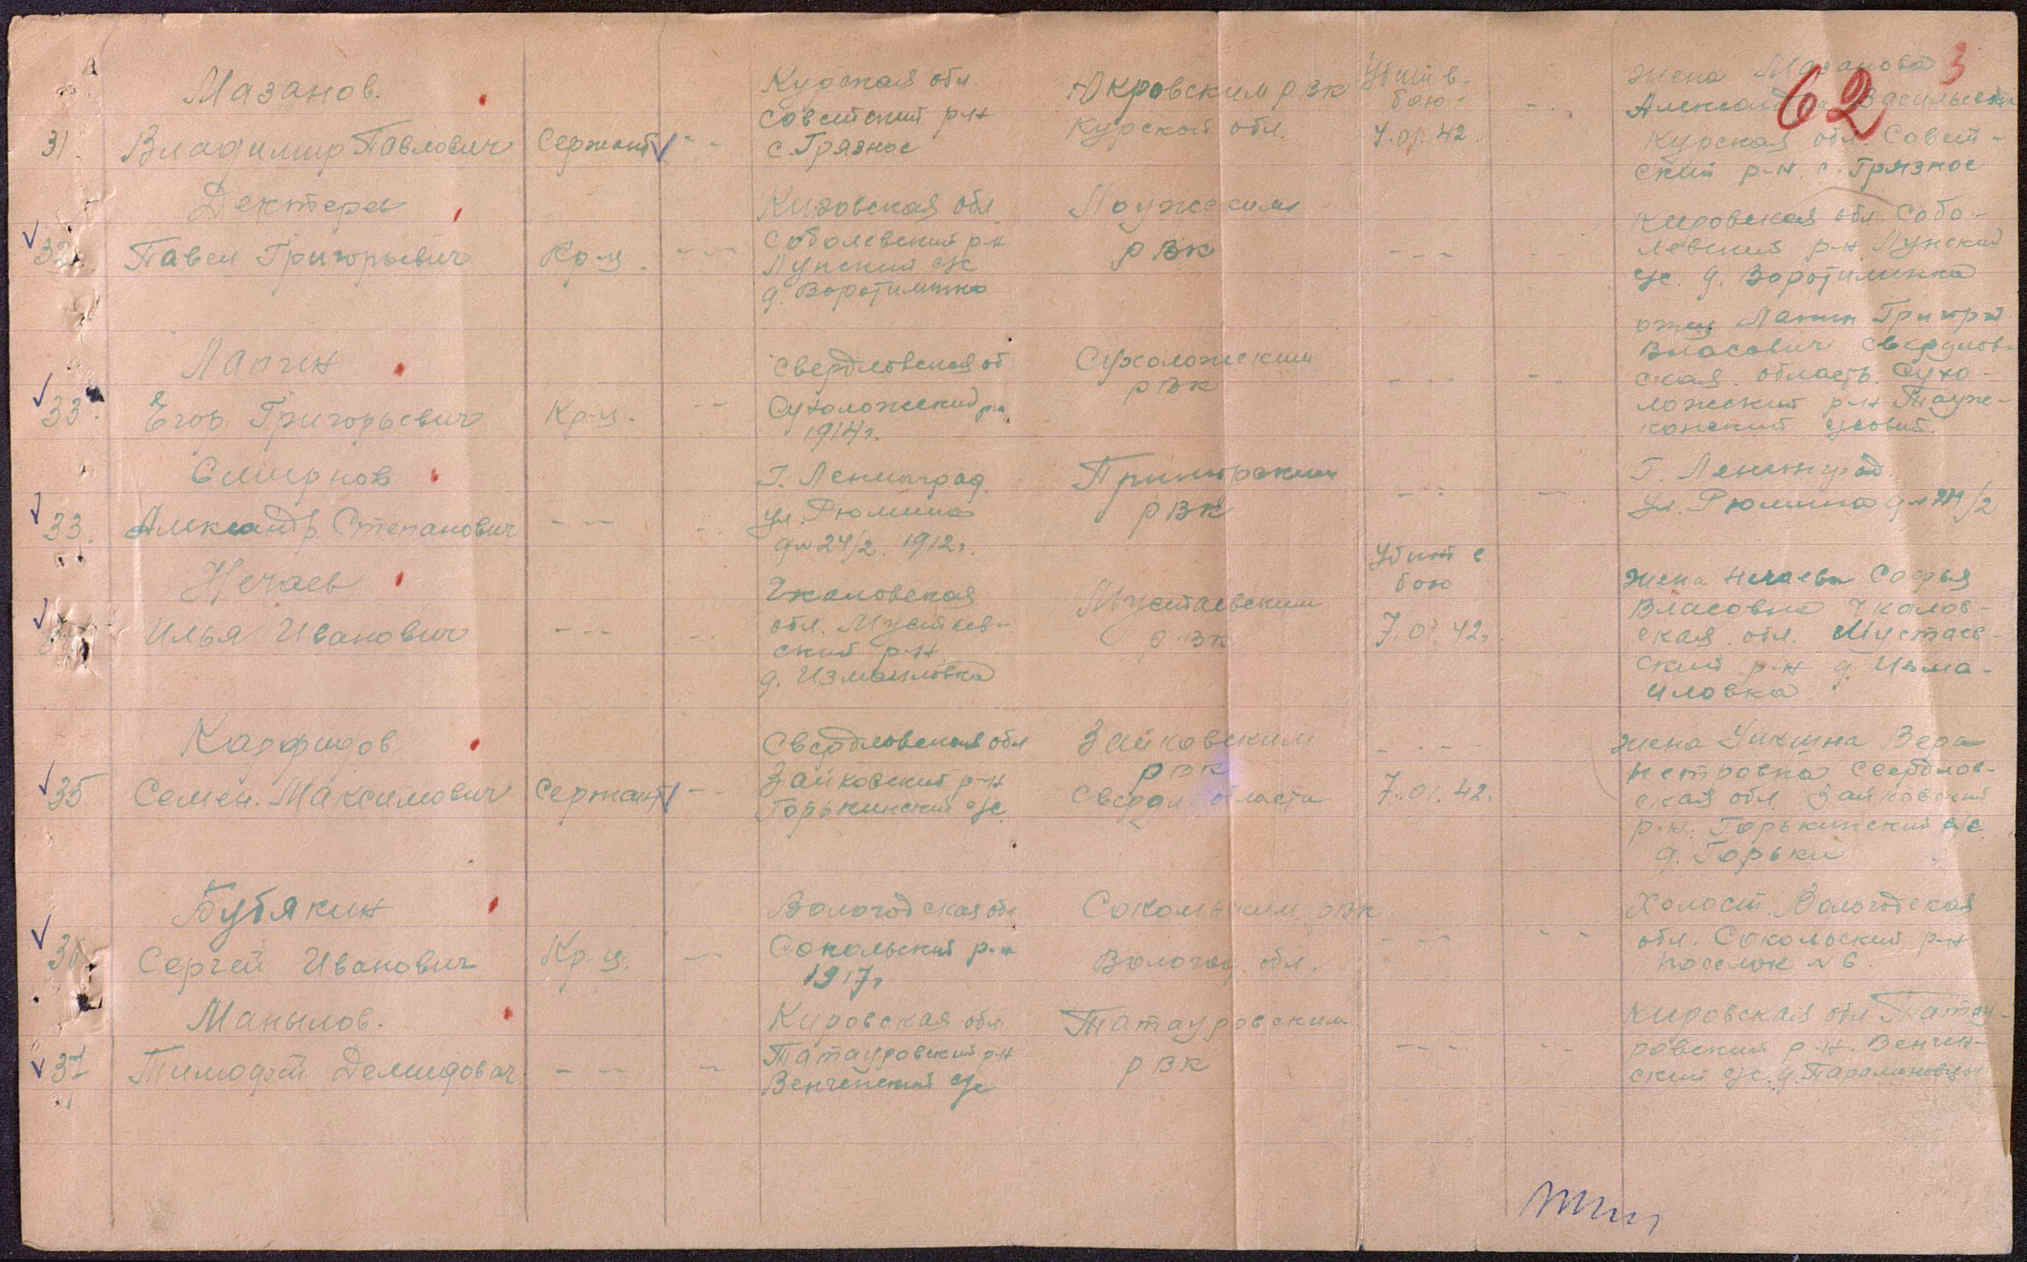 62
3
31.
Мазанов.
Владимир Павлович
Сержант
Курская обл
Советский р-н
с. Грязное
Курской обл.
Убит в
бою
7.01.42.
Жена Мазанова
Александра Васильевна
Курская обл. Совет-
ский р-н. с. Грязное
32.
Дектерев
Павел Григорьевич
Кр-ц.
Кировская обл
р-н
с/с
РВК
Кировская обл
р-н
с/с. д.
33.
Лапин
Егор Григорьевич
Кр-ц.
Свердловская об
Сухоложский р-н
1914г.
Сухоложским
РВК
отец Лапин Григорий
Власович Свердлов-
ская область. Сухо-
ложский р-н
33.
Смирнов
Александр Степанович
Г. Ленинград.
ул. Рюмина
д № 24/2. 1912г.
Приморским
РВК
Г. Ленинград.
ул. Рюмина д № 24/2
Нечаев
Илья Иванович
Чкаловская
обл. Мустаев-
ский р-н
д. Измаиловка
Мустаевским
РВК
Убит в
бою
7.01.42г.
Жена Нечаева Софья
Власовна Чкалов-
ская обл. Мустаев-
ский р-н д. Изма-
иловка
35
Семен. Максимович
Сержант
Свердловская обл
Зайковский р-н
Горькинский с/с
Зайковским
РВК
Сверд. области
7.01.42.
Жена Вера
Петровна Свердлов-
ская обл Зайковский
р-н. Горькинский с/с
д. Горьки
36.
Бубякин
Сергей Иванович
Кр-ц.
Вологодская обл
Сокольский р-н
1917г
Сокольским РВК
Вологод. обл.
Холост. Вологодская
обл. Сокольский р-н
поселок № 6.
37
Манылов.
Тимофей Демидович
Кировская обл
Татауровский р-н
Венченский с/с
Татауровским
РВК
Кировская обл Татау-
ровский р-н. Венчен-
ский с/с. д.